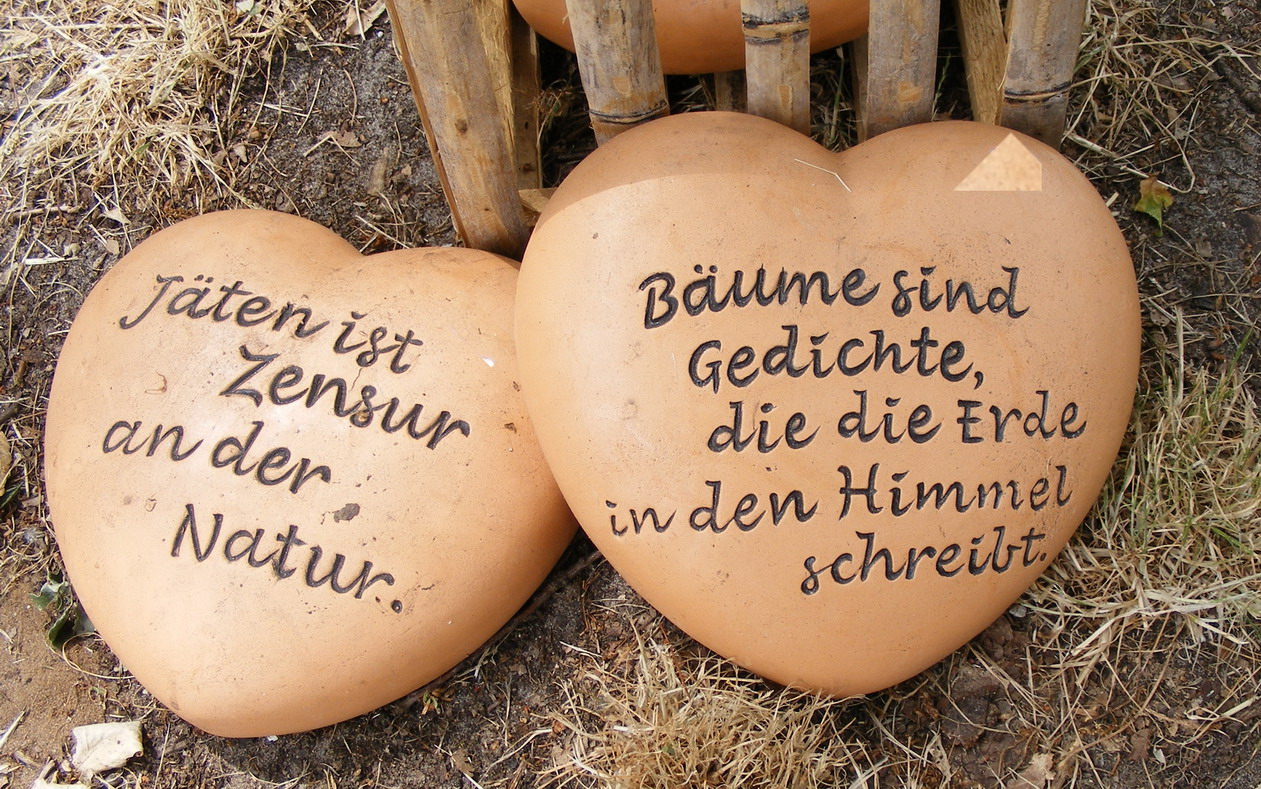 Jäten ist
Zensur
an der
Natur.
Bäume sind
Gedichte,
die die Erde
in den Himmel
schreibt.